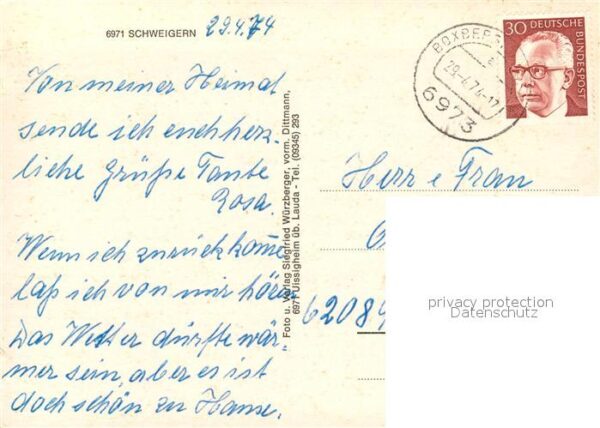 6971 SCHWEIGERN 29.4.74
Von meiner Heimat
sende ich euch herz-
liche Grüße Tante
Rosa.
Wenn ich zurück komme
laß ich von mir hören
Das Wetter dürfte wär-
mer sein, aber es ist
doch schön zu Hause.
Foto u. Verlag Siegfried Würzberger, vorm. Dittmann,
6971 Uissigheim üb. Lauda - Tel. (09345) 293
BOXBERG
29.-4.74-17
6973
30 DEUTSCHE
BUNDESPOST
Herr e Frau
6208
privacy protection
Datenschutz